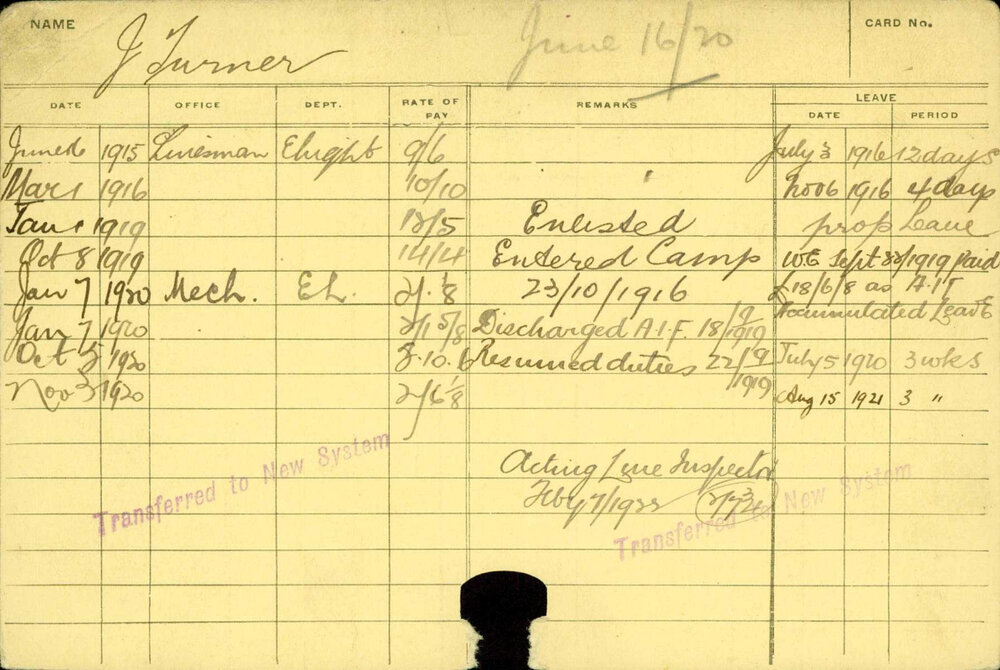 NAME J Turner June 16/20 CARD No.
DATE OFFICE DEPT. RATE OF PAY REMARKS LEAVE
DATE PERIOD
June 16 1915 Linesman Elught 9/6 July 3 1916 12 days
Mar 1 1916 10/10 Nov 6 1916 4 days
Jan 1 1919 12/5 Enlisted prop Leave
Oct 8 1919 14/4 Entered Camp WE Sept 1919 Paid
Jan 7 1920 Mech. El. 23/10/1916 £18/6/8 as A.I.F
Jan 7 1920 Discharged A.I.F. 18/9/1919 Accumulated Leave
Oct 5 1920 Resumed duties 22/9/1919 July 5 1920 3 wks
Nov 3 1920 Aug 15 1921 3 "
Transferred to New System
Acting Line Inspector
Feby 7/1922
Transferred to New System